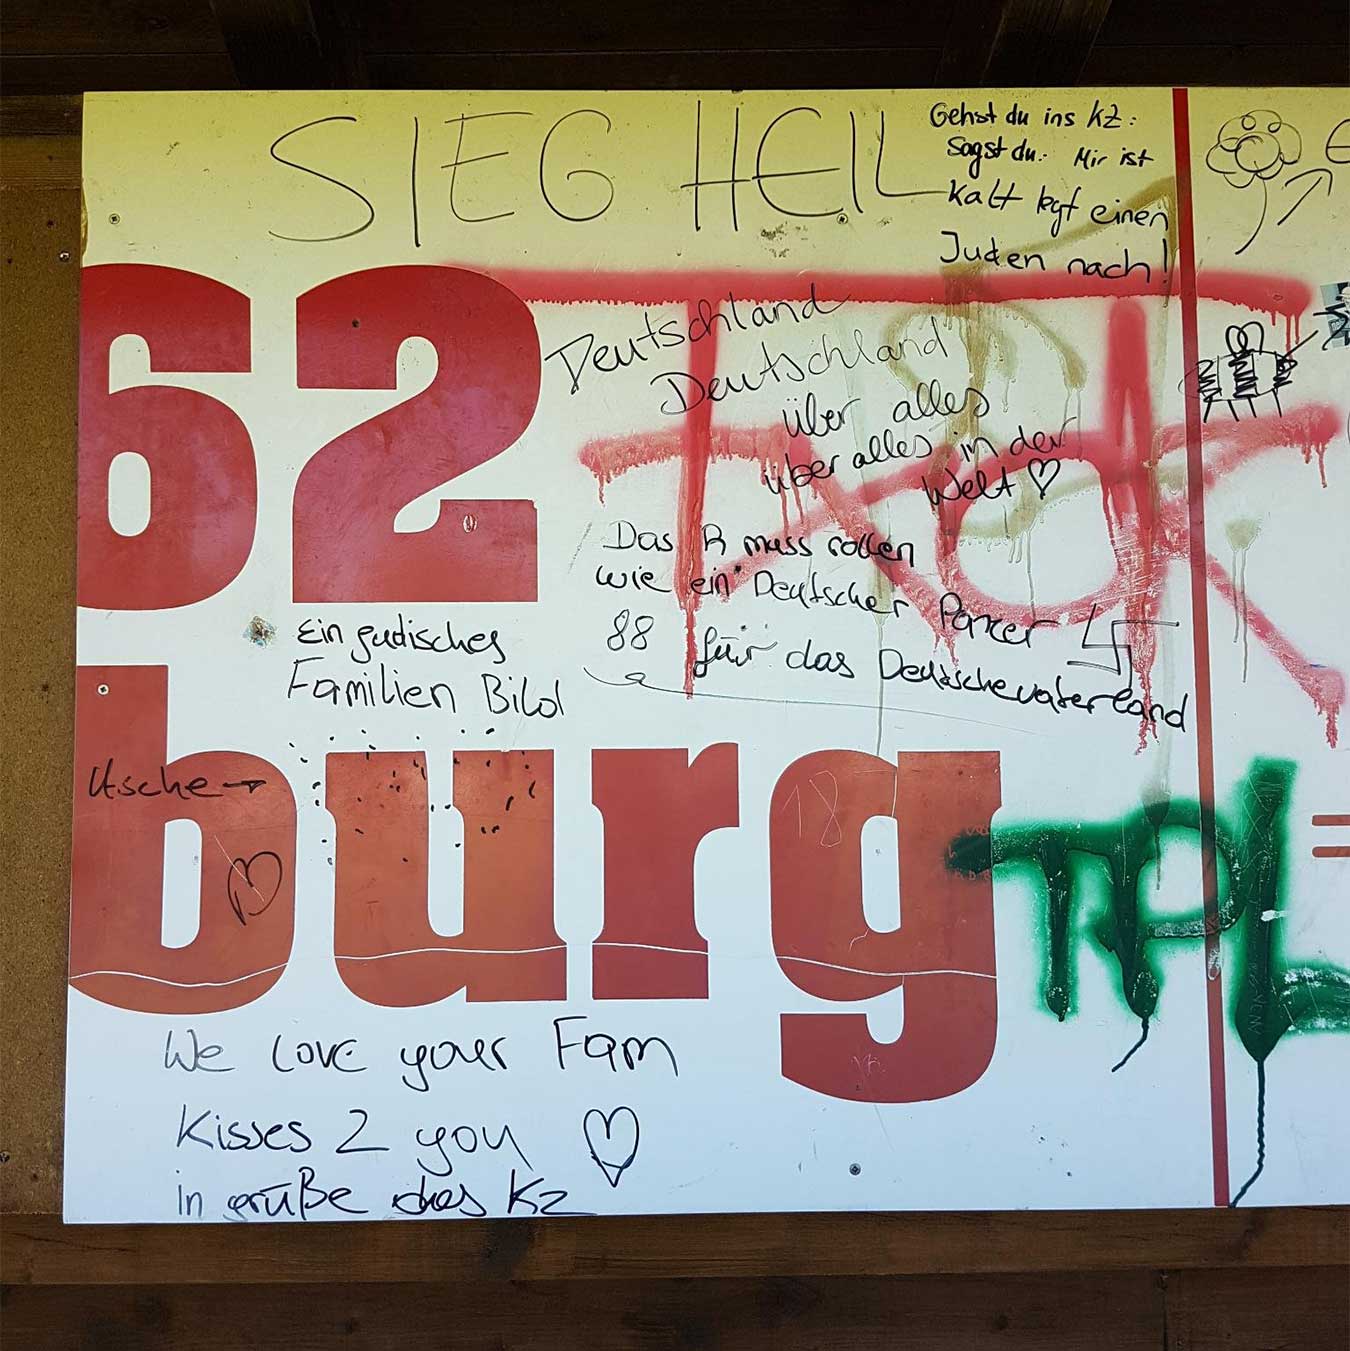 SIEG HEIL
Gehst du ins KZ:
Sagst du: Mir ist
Kalt legt einen
Juden nach!
62
Deutschland
Deutschland
über alles
über alles in der
Welt
Das R muss rollen
wie ein Deutscher Pancer
88 für das Deutschevaterland
Ein judisches
Familien Bild
Asche
burg
18
TPL
We love your Fam
Kisses 2 you
in grüße des KZ